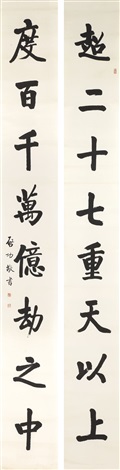 超二十七重天以上
度百千萬億劫之中
啟功敬書